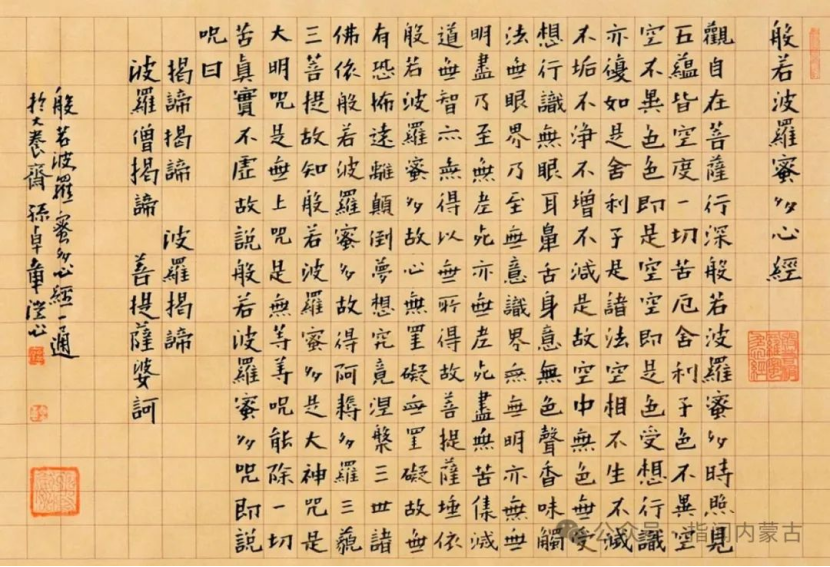 般若波羅蜜多心經
觀自在菩薩行深般若波羅蜜多時照見
五蘊皆空度一切苦厄舍利子色不異空
空不異色色即是空空即是色受想行識
亦復如是舍利子是諸法空相不生不滅
不垢不淨不增不減是故空中無色無受
想行識無眼耳鼻舌身意無色聲香味觸
法無眼界乃至無意識界無無明亦無無
明盡乃至無老死亦無老死盡無苦集滅
道無智亦無得以無所得故菩提薩埵依
般若波羅蜜多故心無罣礙無罣礙故無
有恐怖遠離顛倒夢想究竟涅槃三世諸
佛依般若波羅蜜多故得阿耨多羅三藐
三菩提故知般若波羅蜜多是大神咒是
大明咒是無上咒是無等等咒能除一切
苦眞實不虛故說般若波羅蜜多咒即說
咒曰
揭諦揭諦 波羅揭諦
波羅僧揭諦 菩提薩婆訶
般若波羅蜜多心經一通
於大養齋 孫卓章澄心
公众号 · 指间内蒙古